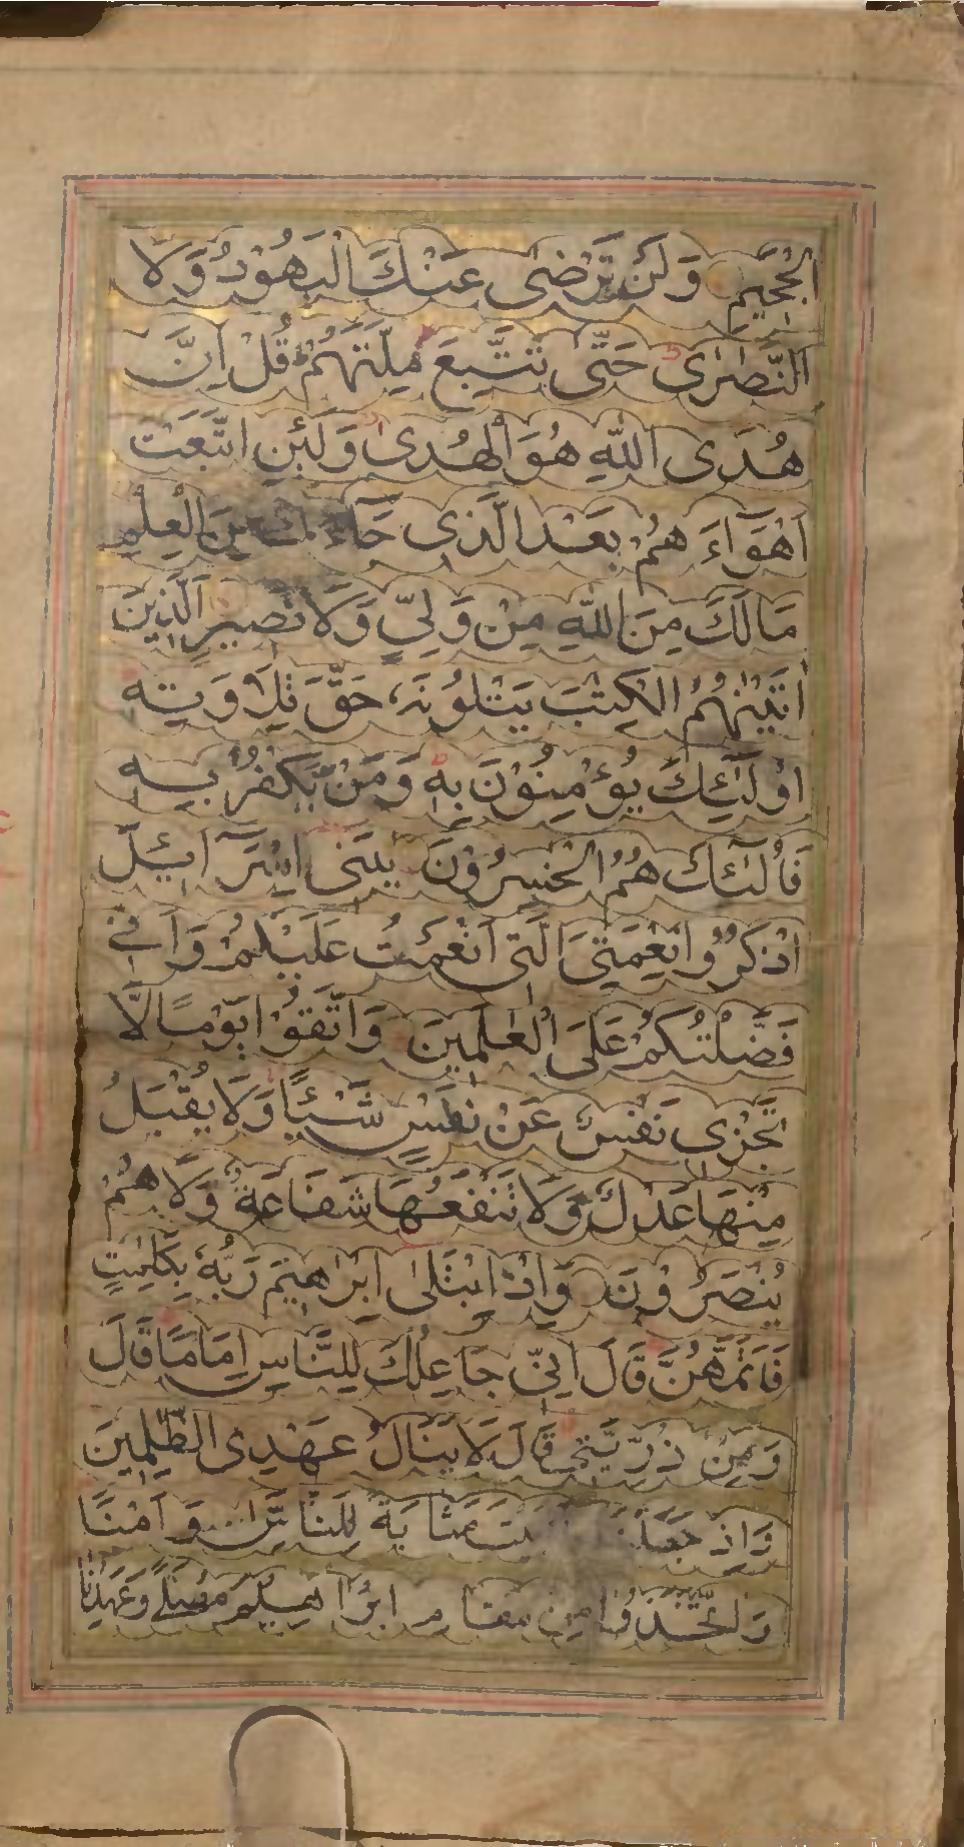 الْجَحِيمِ وَلَنْ تَرْضٰى عَنْكَ الْيَهُوْدُ وَلَا
النَّصٰرٰى حَتّٰى تَتَّبِعَ مِلَّتَهُمْ قُلْ اِنَّ
هُدَى اللّٰهِ هُوَ الْهُدٰى وَلَئِنِ اتَّبَعْتَ
اَهْوَآءَ هُمْ بَعْدَ الَّذِى جَآءَكَ مِنَ الْعِلْمِ
مَا لَكَ مِنَ اللّٰهِ مِنْ وَلِيٍّ وَلَا نَصِيْرٍ اَلَّذِيْنَ
اٰتَيْنٰهُمُ الْكِتٰبَ يَتْلُوْنَهٗ حَقَّ تِلَاوَتِهٖ
اُولٰٓئِكَ يُؤْمِنُوْنَ بِهٖ وَمَنْ يَّكْفُرْ بِهٖ
فَاُلٰٓئِكَ هُمُ الْخٰسِرُوْنَ يٰبَنِى اِسْرَآئِيْلَ
اذْكُرُوْا نِعْمَتِىَ الَّتِى اَنْعَمْتُ عَلَيْكُمْ وَاَنِّى
فَضَّلْتُكُمْ عَلَى الْعٰلَمِيْنَ وَاتَّقُوْا يَوْمًا لَّا
تَجْزِى نَفْسٌ عَنْ نَفْسٍ شَيْئًا وَلَا يُقْبَلُ
مِنْهَا عَدْلٌ وَلَا تَنْفَعُهَا شَفَاعَةٌ وَلَا هُمْ
يُنْصَرُوْنَ وَاِذِ ابْتَلٰى اِبْرَاهِيْمَ رَبُّهٗ بِكَلِمٰتٍ
فَاَتَمَّهُنَّ قَالَ اِنِّى جَاعِلُكَ لِلنَّاسِ اِمَامًا قَالَ
وَمِنْ ذُرِّيَّتِى قَالَ لَا يَنَالُ عَهْدِى الظّٰلِمِيْنَ
وَاِذْ مَثَابَةً لِلنَّاسِ وَاَمْنًا
وَاتَّخِذُوْا مِنْ مَقَامِ اِبْرَاهِيْمَ مُصَلًّى وَعَهِدْنَا